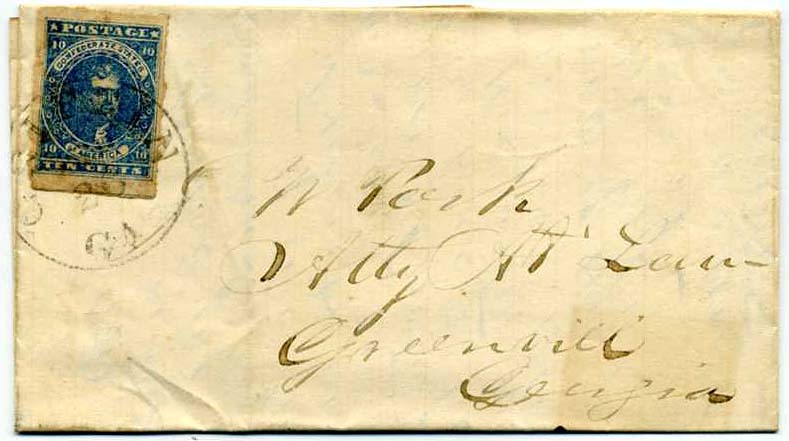 POSTAGE
10 10
CONFEDERATE STATES
OF AMERICA
10 10
TEN CENTS
GA
W Park
Atty At Law
Greenvill
Georgia